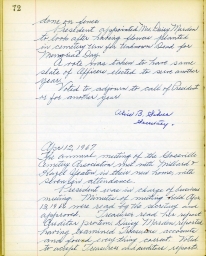 72
done on fence
President appointed Mrs. Daisy Marden
to look after having flowers planted
in cemetery urn for Unknown Dead for
Memorial Day.
A vote was taken to have same
slate of Officers elected to serve another
year.
Voted to adjourn to call of President
or for another year
Alice B.
Secretary.
Nov 12, 1967
The annual meeting of the
Cemetery Association met with
Hazel in their new home with
seven in attendance.
President was in charge of business
meeting. Minutes of meeting held
13, 19 was read by the secretary and
approved. Treasurer read his report
Auditor Marden reported
having examined Treasurers account
and found very thing correct. Voted
to accept Treasurers and auditors reports